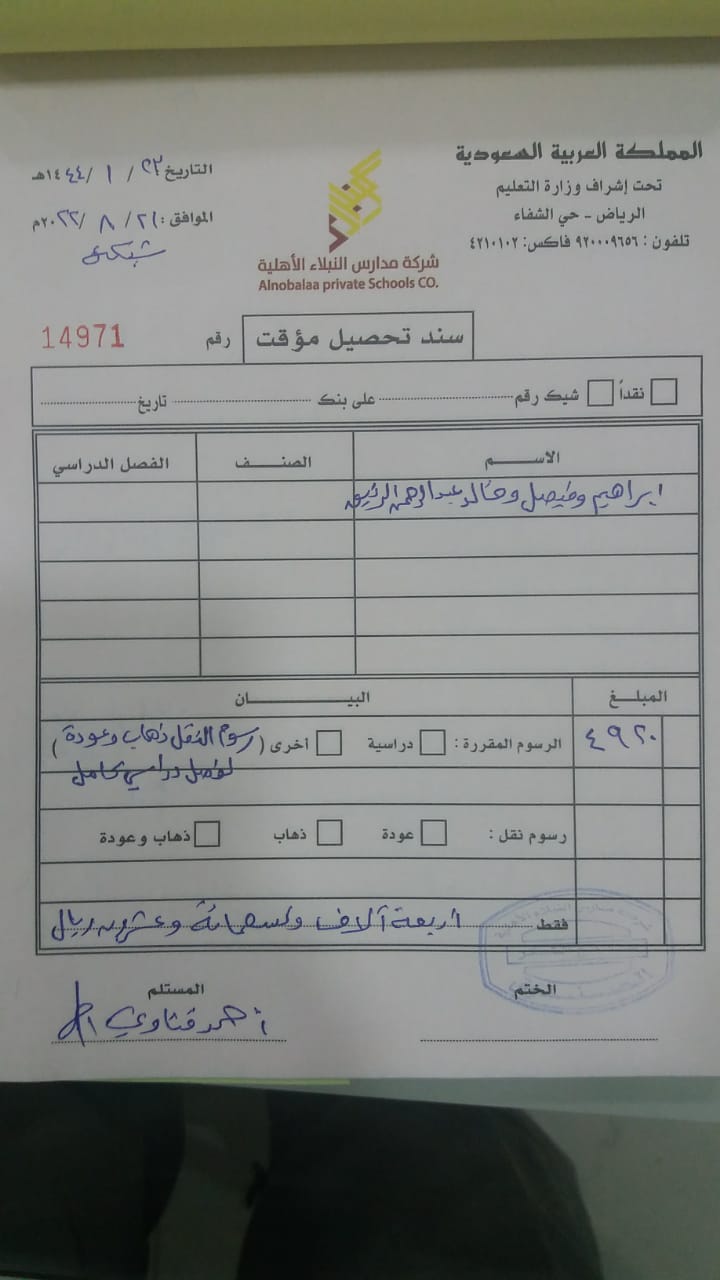 المملكة العربية السعودية
تحت إشراف وزارة التعليم
الرياض - حي الشفاء
تلفون : ٩٢٠٠٠٩٦٥٦ فاكس: ٤٢١٠١٠٢
شركة مدارس النبلاء الأهلية
Alnobalaa private Schools CO.
التاريخ ٢٣ / ١ / ١٤٤٤هـ
الموافق : ٢١ / ٨ / ٢٠٢٢م
شبكة
سند تحصيل مؤقت
رقم 14971
نقداً شيك رقم على بنك تاريخ
الاسم الصنف الفصل الدراسي
ابراهيم وفيصل وخالد عبدالرحمن
المبلغ البيان
٤٩٢٠ الرسوم المقررة : دراسية أخرى (رسوم النقل ذهاب وعودة)
لفصل دراسي كامل
رسوم نقل : عودة ذهاب ذهاب وعودة
فقط اربعة آلاف وتسعمائة وعشرون ريال
الختم المستلم
أحمد قناوي